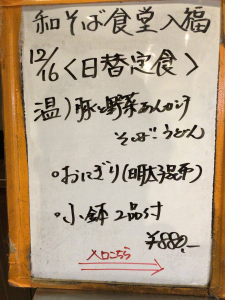 和そば食堂 入福
12/16 <日替定食>
温) 豚と野菜あんかけ
そば・うどん
・おにぎり(明太昆布)
・小鉢2品付
¥880.-
入口こちら